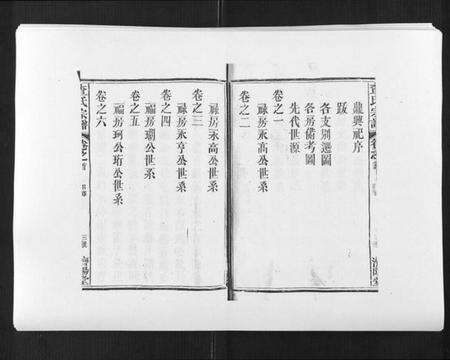 鼎興祀序
跋
各支別遷圖
各房備考圖
先代世源
卷之一
祿房永高公世系
卷之二
祿房永高公世系
卷之三
祿房永亨公世系
卷之四
福房瑚公世系
卷之五
福房珂公珩公世系
卷之六
氏宗譜